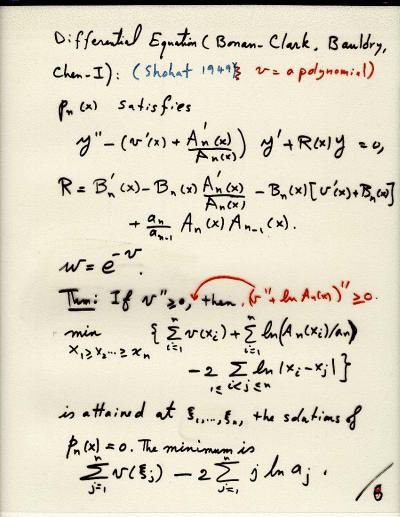 Differential Equation (Bonan-Clark, Bauldry,
Chen-I): (Shohat 1949; v = a polynomial)
pₙ(x) satisfies
y'' - (v'(x) + Aₙ'(x)/Aₙ(x)) y' + R(x)y = 0,
R = Bₙ'(x) - Bₙ(x) Aₙ'(x)/Aₙ(x) - Bₙ(x)[v'(x)+Bₙ(x)]
+ aₙ/aₙ₋₁ Aₙ(x) Aₙ₋₁(x).
w = e^{-v}.
Thm: If v'' ≥ 0, then (v + ln Aₙ(x))'' ≥ 0.
min_{x₁ ≥ x₂ ... ≥ xₙ} { ∑_{i=1}^{n} v(xᵢ) + ∑_{i=1}^{n} ln(Aₙ(xᵢ)/aₙ)
- 2 ∑_{1≤i<j≤n} ln|xᵢ - xⱼ| }
is attained at ξ₁,...,ξₙ, the solutions of
pₙ(x) = 0. The minimum is
∑_{j=1}^{n} v(ξⱼ) - 2 ∑_{j=1}^{n} j ln aⱼ.